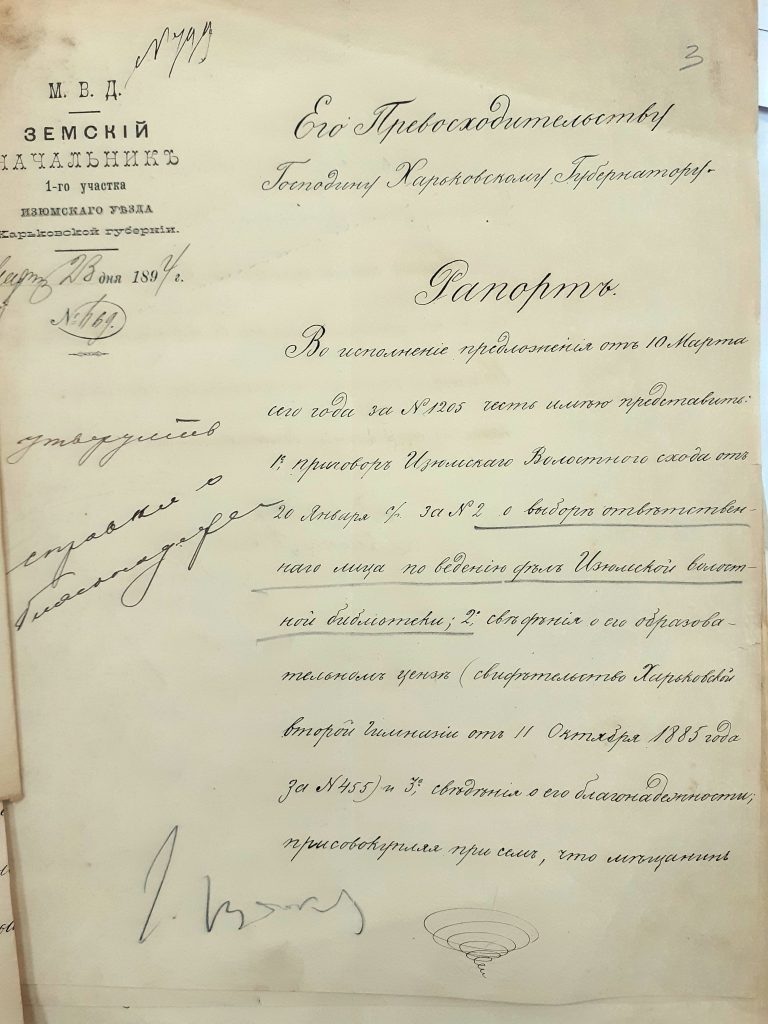 3
М. В. Д.
ЗЕМСКІЙ
НАЧАЛЬНИКЪ
1-го участка
ИЗЮМСКАГО УѢЗДА
Харьковской губерніи.
23 дня 1894 г.
№ 1169.
Его Превосходительству
Господину Харьковскому Губернатору.
Рапортъ.
Во исполненіе предложенія отъ 10 Марта
сего года за № 1205 честь имѣю представить:
1е, приговоръ Изюмскаго Волостного схода отъ
20 Января с/г за № 2 о выборѣ отвѣтствен-
наго лица по веденію дѣлъ Изюмской волост-
ной библіотеки; 2е свѣдѣнія о его образова-
тельномъ цензѣ (свидѣтельство Харьковской
второй Гимназіи отъ 11 Октября 1885 года
за № 455) и 3е, свѣдѣнія о его благонадежности;
присовокупляя при семъ, что мѣщанинъ
справки о